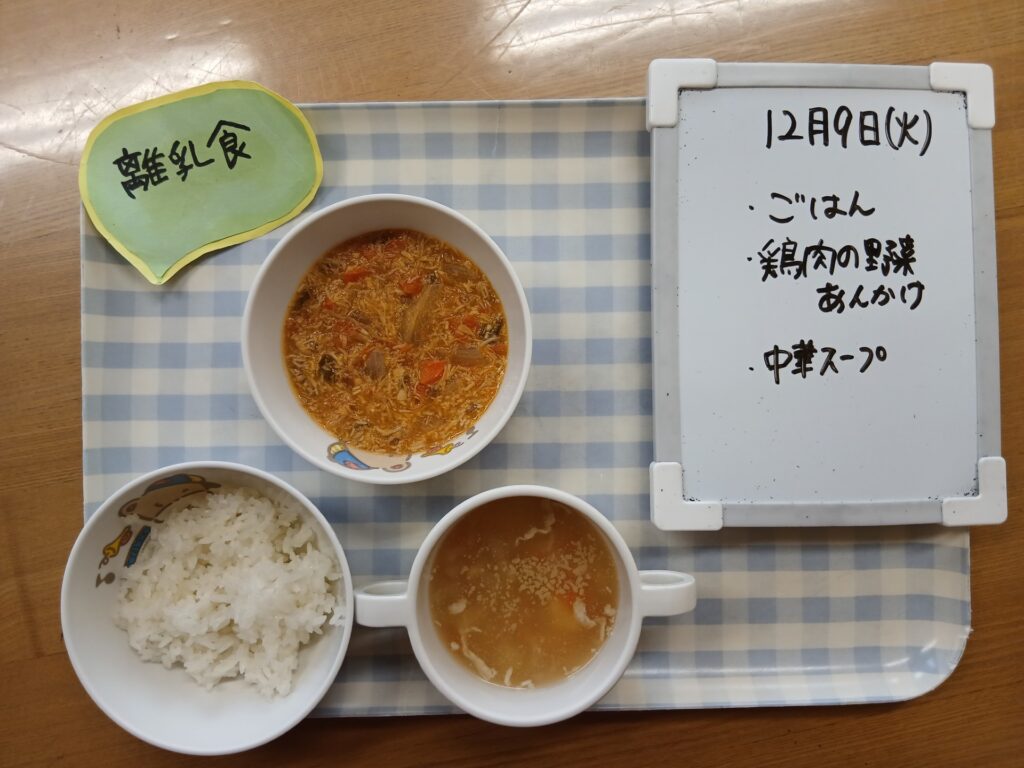 離乳食
12月9日(火)
・ごはん
・鶏肉の野菜
あんかけ
・中華スープ